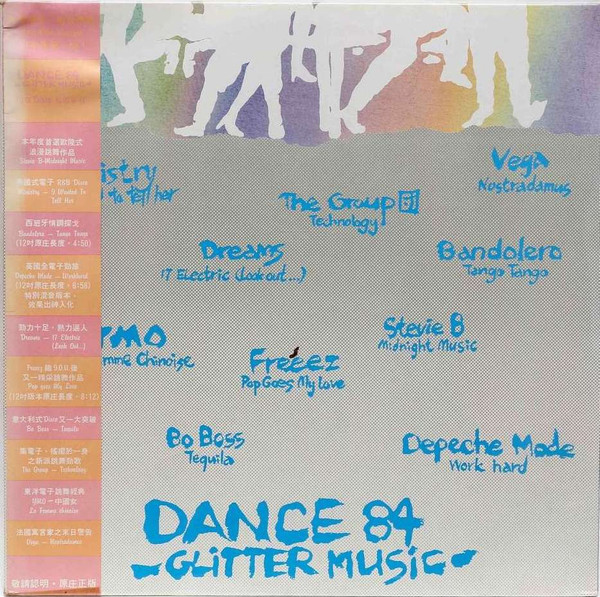 DANCE 84
本年度首選歐陸式
浪漫跳舞作品
Stevie B-Midnight Music
國式電子 R&B Disco
Ministry — I Wanted To
Tell Her
西班牙情調探戈
Bandolero — Tango Tango
(12吋原庄長度,4:58)
英國全電子勁旅
Depeche Mode — Workhard
(12吋原庄長度,6:58)
特別混音版本,
效果出神入化
動力十足,熱力逼人
Dreams — 17 Electric
(Look Out..)
Freeez 繼 I.O.U. 後
又一精采跳舞作品
Pop goes My Love
(12吋版本原庄長度,8:12)
意大利式Disco又一大突破
Bo Boss — Tequila
集電子,搖擺於一身
之新派跳舞勁歌
The Group — Technology
東洋電子跳舞經典
YMO — 中國女
La Femme Chinoise
法國寓言家之末日警告
Vega — Nostradamus
敬請認明・原庄正版
istry
to tell her
Vega
Nostradamus
The Group 51
Technology
Dreams
17 Electric (Look out...)
Bandolero
Tango Tango
MO
mme Chinoise
Stevie B
Midnight Music
Freeez
Pop Goes My Love
Bo Boss
Tequila
Depeche Mode
Work hard
DANCE 84
-GLITTER MUSIC-